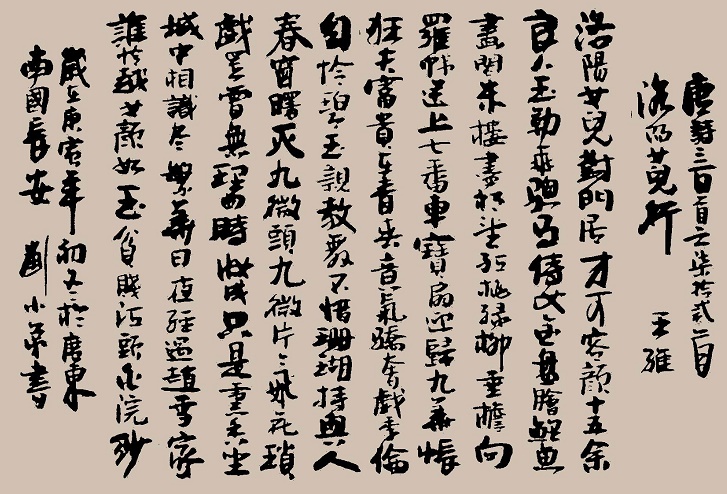 唐詩三百首之柒拾貳首
洛阳女兒行 王維
洛陽女兒對門居才可容顏十五余
良人玉勒乘驄馬侍女金盤膾鯉魚
畫閣朱樓盡相望红桃绿柳垂檐向
羅帏送上七香車寶扇迎歸九華帳
狂夫富貴在青春意氣驕奢戲季倫
自怜碧玉親教舞不惜珊瑚持與人
春窗曙灭九微九微片片飛花瑣
戲罢曾無理曲時妝成只是熏香坐
城中相識尽繁華日夜經過趙李家
誰怜越女顏如玉貧賤江頭自浣紗
歲在庚寅年初夏於廣東
南國長安 劉小弟書